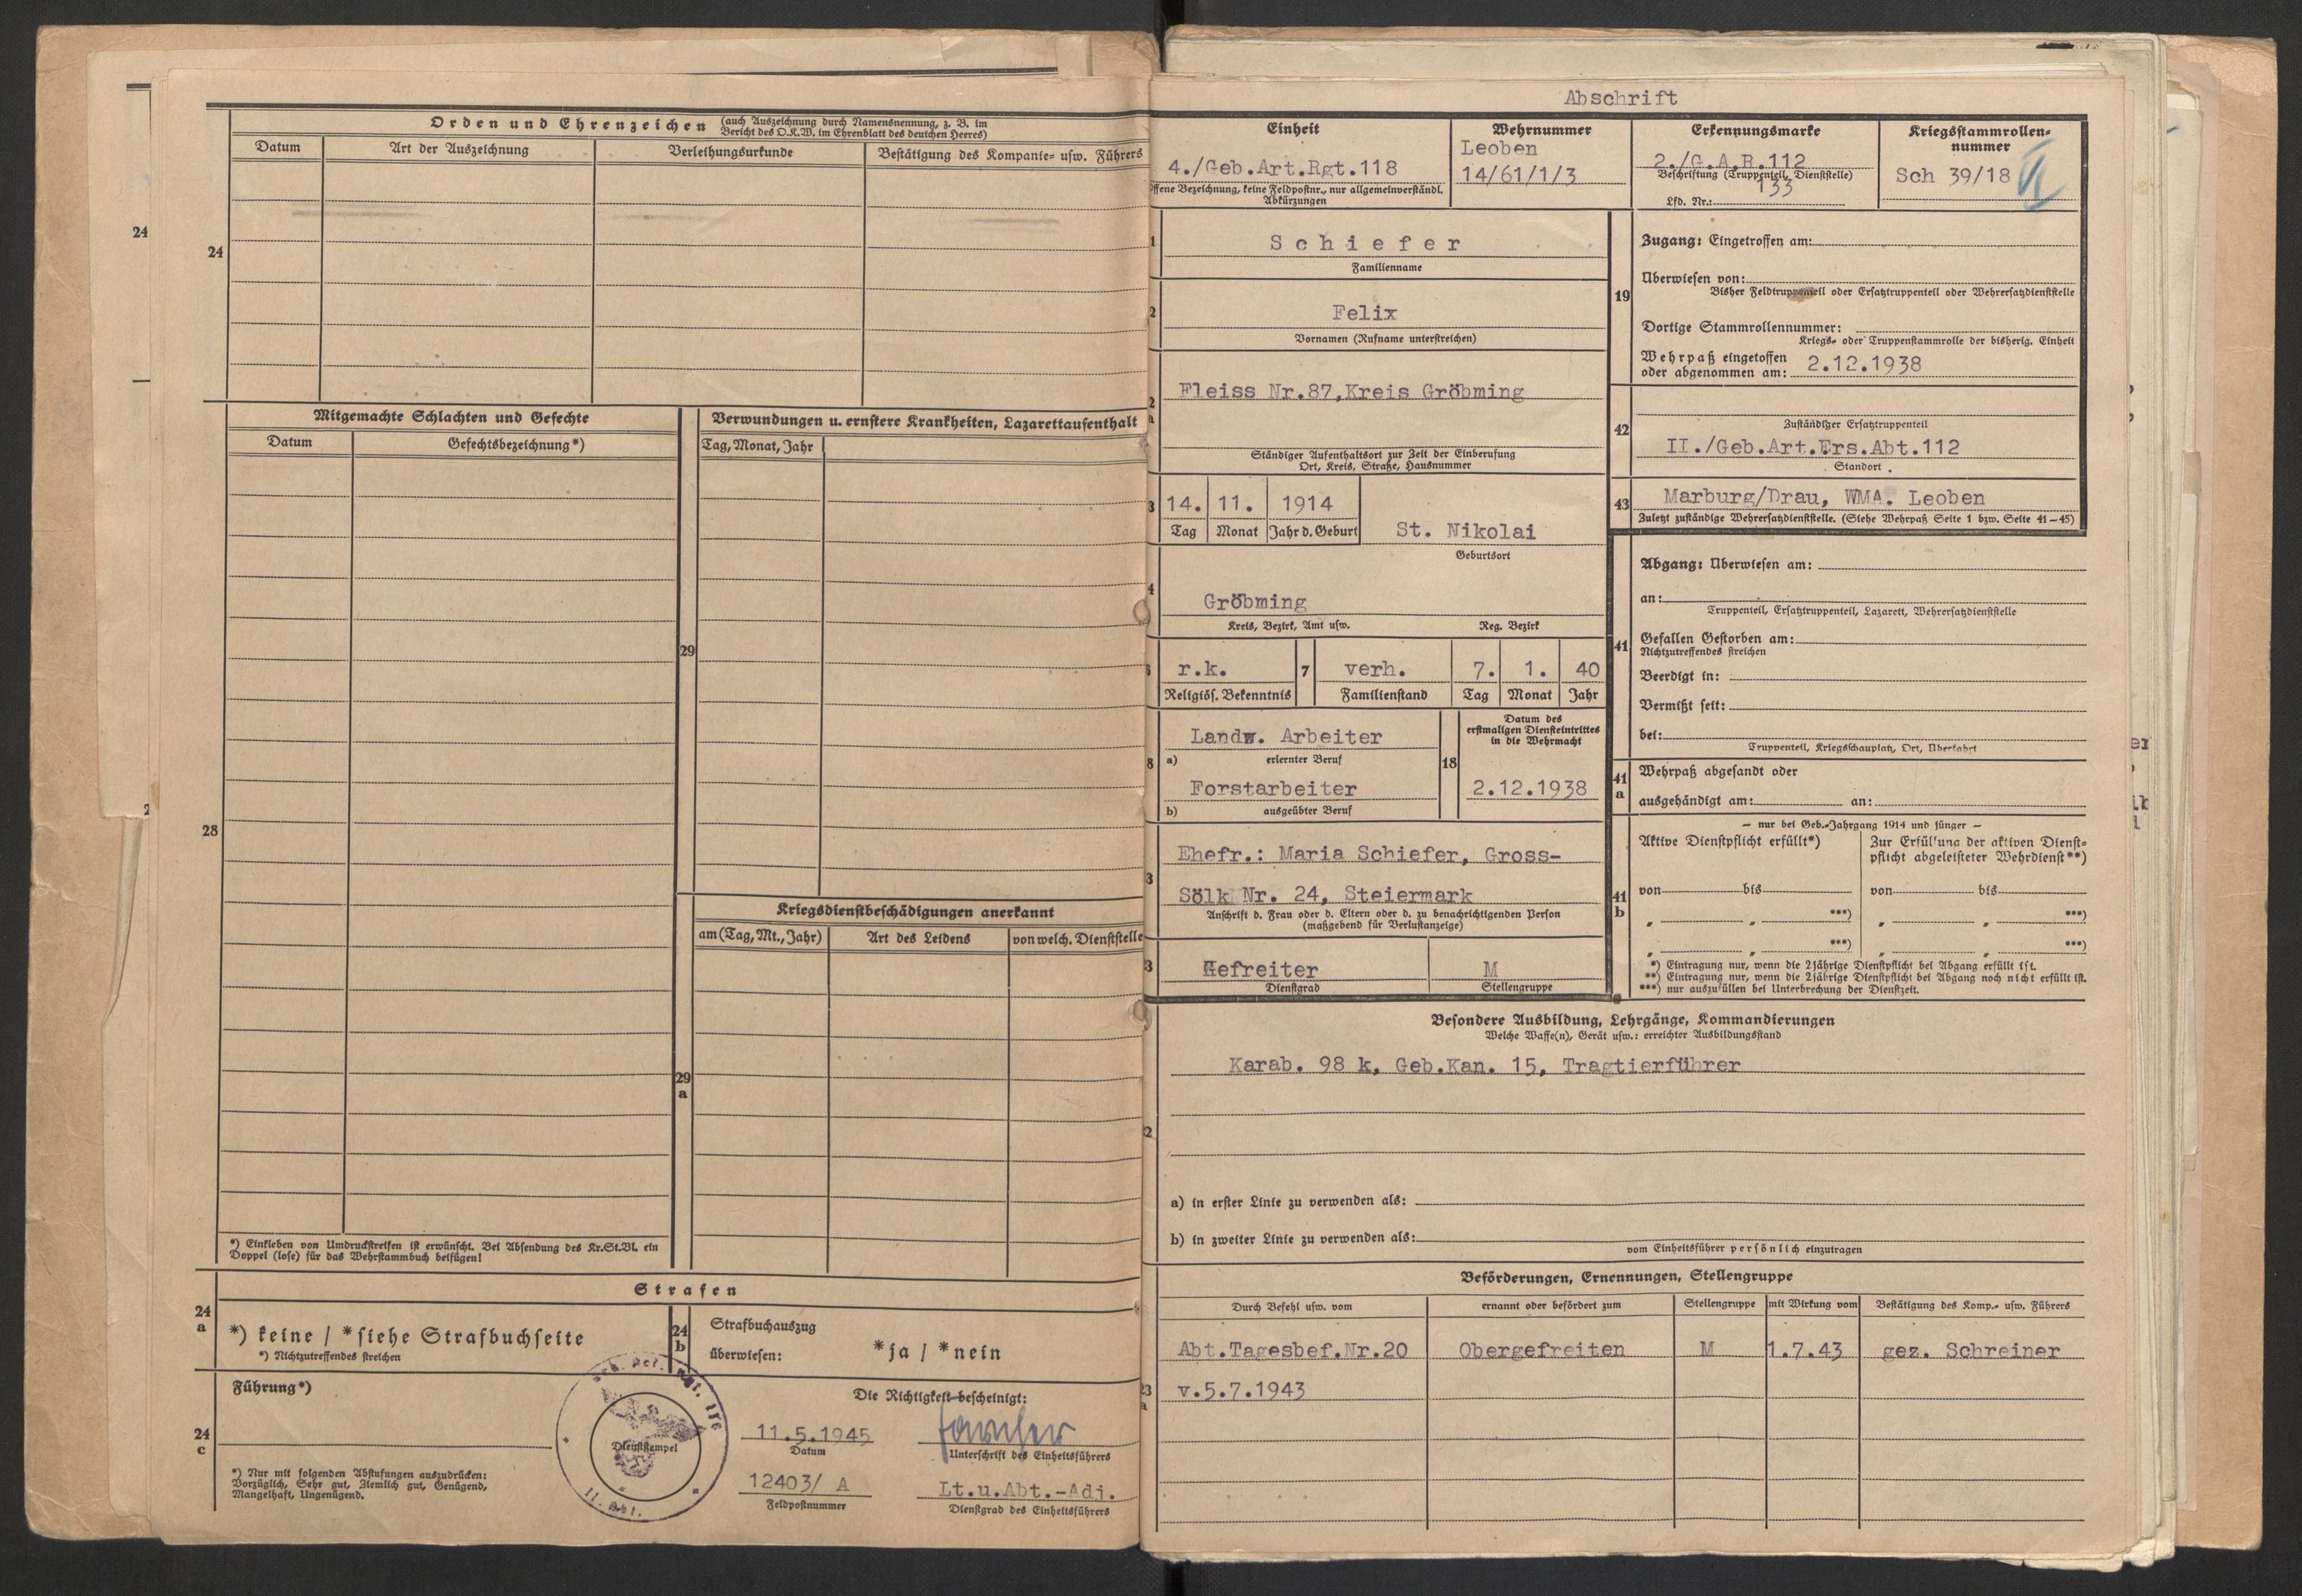 Orden und Ehrenzeichen (auch Auszeichnung durch Namensnennung, z. B. im
Bericht des O.K.W. im Ehrenblatt des deutschen Heeres)
Datum Art der Auszeichnung Verleihungsurkunde Bestätigung des Kompanie- usw. Führers
24
24
Mitgemachte Schlachten und Gefechte
Datum Gefechtsbezeichnung*)
28
*) Einkleben von Umdruckstreifen ist erwünscht. Bei Absendung des Kr.St.Bl. ein
Doppel (lose) für das Wehrstammbuch beifügen!
Verwundungen u. ernstere Krankheiten, Lazarettaufenthalt
Tag, Monat, Jahr
29
Kriegsdienstbeschädigungen anerkannt
am (Tag, Mt., Jahr) Art des Leidens von welch. Dienststelle
29
a
Strafen
24
a
*) keine / *siehe Strafbuchseite
*) Nichtzutreffendes streichen
24
b
Strafbuchauszug
überwiesen: *ja / *nein
24
c
Führung*)
*) Nur mit folgenden Abstufungen auszudrücken:
Vorzüglich, Sehr gut, Ziemlich gut, Genügend,
Mangelhaft, Ungenügend.
Dienststempel
II. Abt.
Die Richtigkeit bescheinigt:
11.5.1945
Datum Unterschrift des Einheitsführers
12403/ A Lt.u.Abt.-Adj.
Feldpostnummer Dienstgrad des Einheitsführers
Abschrift
Einheit
4./Geb.Art.Rgt.118
Offene Bezeichnung, keine Feldpostnr., nur allgemeinverständl.
Abkürzungen
Wehrnummer
Leoben
14/61/1/3
Erkennungsmarke
2./G.A.R.112
Beschriftung (Truppenteil, Dienststelle)
133
Lfd. Nr.:
Kriegsstammrollen-
nummer
Sch 39/18
1
Schiefer
Familienname
2
Felix
Vornamen (Rufname unterstreichen)
2
a
Fleiss Nr.87,Kreis Gröbming
Ständiger Aufenthaltsort zur Zeit der Einberufung
Ort, Kreis, Straße, Hausnummer
3
14. 11. 1914
Tag Monat Jahr d. Geburt
St. Nikolai
Geburtsort
4
Gröbming
Kreis, Bezirk, Amt usw. Reg. Bezirk
r.k. 7 verh. 7. 1. 40
Religiös. Bekenntnis Familienstand Tag Monat Jahr
8
Landw. Arbeiter
a) erlernter Beruf
Forstarbeiter
b) ausgeübter Beruf
18
Datum des
erstmaligen Diensteintrittes
in die Wehrmacht
2.12.1938
3
Ehefr.: Maria Schiefer, Gross-
Sölk Nr. 24, Steiermark
Anschrift d. Frau oder d. Eltern oder d. zu benachrichtigenden Person
(maßgebend für Verlustanzeige)
3
Gefreiter M
Dienstgrad Stellengruppe
19
Zugang: Eingetroffen am:
Überwiesen von:
Bisher Feldtruppenteil oder Ersatztruppenteil oder Wehrersatzdienststelle
Dortige Stammrollennummer:
Kriegs- oder Truppenstammrolle der bisherig. Einheit
Wehrpaß eingetoffen
oder abgenommen am: 2.12.1938
42
Zuständiger Ersatztruppenteil
II./Geb.Art.Ers.Abt.112
Standort
43
Marburg/Drau, WMA. Leoben
Zuletzt zuständige Wehrersatzdienststelle. (Siehe Wehrpaß Seite 1 bzw. Seite 41—45)
41
Abgang: Überwiesen am:
an:
Truppenteil, Ersatztruppenteil, Lazarett, Wehrersatzdienststelle
Gefallen Gestorben am:
Nichtzutreffendes streichen
Beerdigt in:
Vermißt seit:
bei:
Truppenteil, Kriegsschauplatz, Ort, Überfahrt
41
a
Wehrpaß abgesandt oder
ausgehändigt am: an:
— nur bei Geb.-Jahrgang 1914 und jünger —
41
b
Aktive Dienstpflicht erfüllt*)
von bis
" " ***)
" " ***)
Zur Erfüllung der aktiven Dienst-
pflicht abgeleisteter Wehrdienst**)
von bis
" " ***)
" " ***)
*) Eintragung nur, wenn die 2jährige Dienstpflicht bei Abgang erfüllt ist.
**) Eintragung nur, wenn die 2jährige Dienstpflicht bei Abgang noch nicht erfüllt ist.
***) nur auszufüllen bei Unterbrechung der Dienstzeit.
Besondere Ausbildung, Lehrgänge, Kommandierungen
Welche Waffe(n), Gerät usw.: erreichter Ausbildungsstand
Karab. 98 k, Geb.Kan. 15, Tragtierführer
a) in erster Linie zu verwenden als:
b) in zweiter Linie zu verwenden als:
vom Einheitsführer persönlich einzutragen
Beförderungen, Ernennungen, Stellengruppe
Durch Befehl usw. vom ernannt oder befördert zum Stellengruppe mit Wirkung vom Bestätigung des Komp.- usw. Führers
Abt.Tagesbef.Nr.20 Obergefreiten M 1.7.43 gez. Schreiner
v.5.7.1943